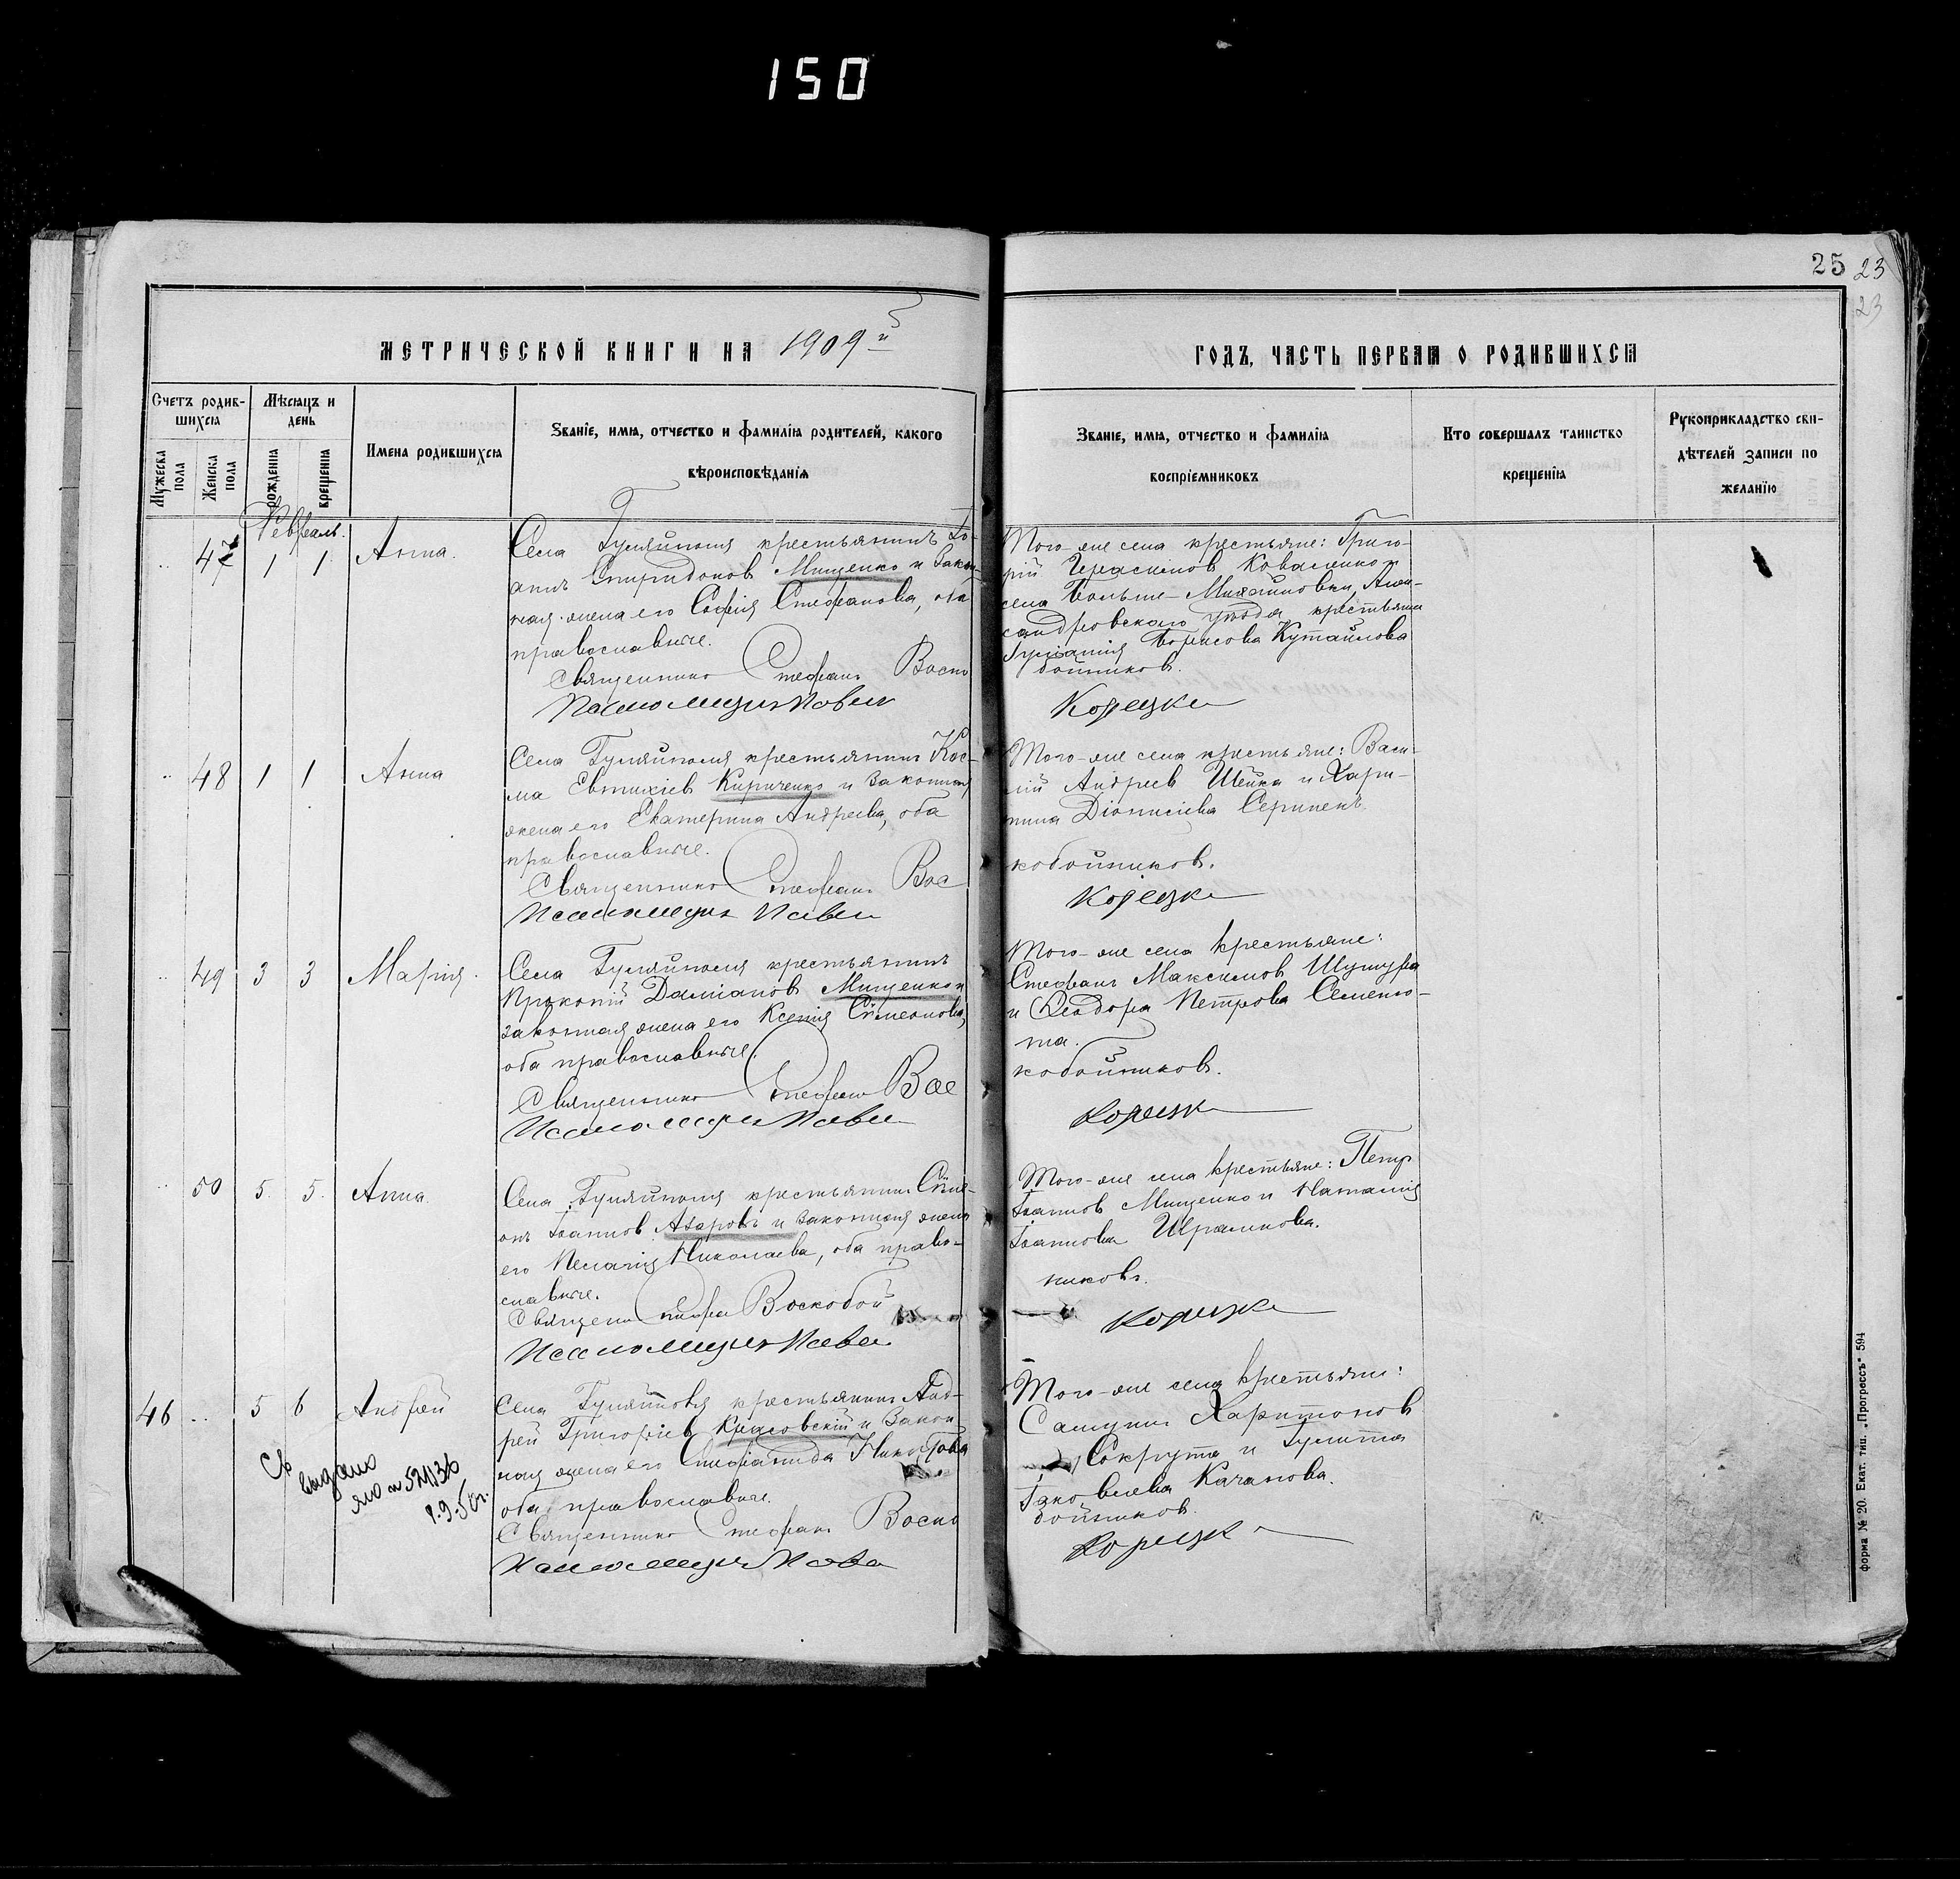 150
25 23
23
МЕТРИЧЕСКОЙ КНИГИ НА 1909й
ГОДЪ, ЧАСТЬ ПЕРВАЯ О РОДИВШИХСЯ
Счетъ родив-
шихся
Мужеска пола
Женска пола
Мѣсяцъ и день
рожденія
крещенія
Имена родившихся
Званіе, имя, отчество и фамилія родителей, какого
вѣроисповѣданія
Званіе, имя, отчество и фамилія
воспріемниковъ
Кто совершалъ таинство
крещенія
Рукоприкладство сви-
дѣтелей записи по
желанію
Февраль.
47 1 1 Анна.
Села Гуляйполя крестьянинъ Іо-
аннъ Спиридоновъ Мищенко и закон-
ная жена его Софія Стефанова, оба
православные.
Священникъ Стефанъ Воско
Того-же села крестьяне: Григо-
рій Герасимовъ Коваленко и
села Больше-Михайловки, Алек-
сандровскаго уѣзда, крестьянка
Борисова
бойниковъ.
48 1 1 Анна
Села Гуляйполя крестьянинъ Кос-
ма Евтихіевъ Кириченко и законная
жена его Екатерина Андреева, оба
православные.
Священникъ Стефанъ Вос
Того-же села крестьяне: Васи-
лій Андреевъ Шейка и Хари-
тина Діонисіева
кобойниковъ.
49 3 3 Марія.
Села Гуляйполя крестьянинъ
Прокопій Даміановъ Мищенко и
законная жена его Ксенія Сѵмеонова,
оба православные.
Священникъ Стефанъ Вос
Того-же села крестьяне:
Стефанъ Максимовъ
и Ѳеодора Петрова Семеню-
та.
кобойниковъ.
50 5 5 Анна
Села Гуляйполя крестьянинъ Сѵме-
онъ Іоанновъ Азаровъ и законная жена
его Пелагія Николаева, оба право-
славные.
Священ Стефан Воскобой
Того-же села крестьяне: Петръ
Іоанновъ Мищенко и Наталія
Іоаннова
никовъ.
46 5 6 Андрей
Села Гуляйполя крестьянинъ Анд-
рей Григоріевъ Красовскій и закон
ная жена его Стефанида
оба православные.
Священникъ Стефанъ Воско
Того-же села крестьяне:
Самуилъ Харитоновъ
Сокрута и Гулитта
Іаковлева Качанова.
бойниковъ.
Св
выдано
ЯЮ № 524136
9.9.50г.
форма № 20. Екат. тип. „Прогрессъ" 594